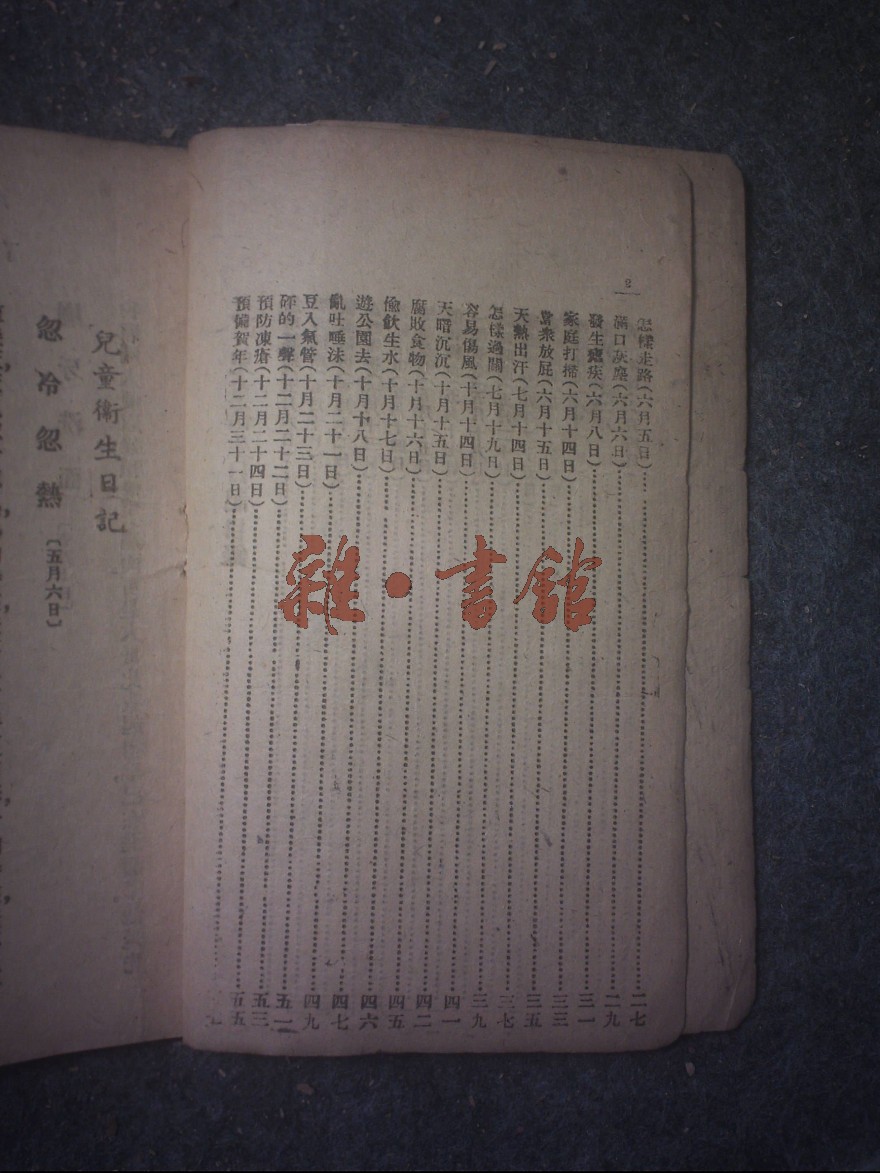 2
怎樣走路(六月五日)……二七
滿口灰塵(六月六日)……二九
發生瘧疾(六月八日)……三一
家庭打掃(六月十四日)……三三
當衆放屁(六月十五日)……三五
天熱出汗(七月十四日)……三七
怎樣過關(七月十九日)……三九
容易傷風(十月十四日)……四一
天暗沉沉(十月十五日)……四二
腐敗食物(十月十六日)……四五
偸飲生水(十月十七日)……四六
遊公園去(十月十八日)……四七
亂吐唾沫(十月二十一日)……四九
豆入氣管(十月二十三日)……五一
砰的一聲(十二月二十二日)……五三
預防凍瘡(十二月二十四日)……五五
預備賀年(十二月三十一日)……
兒童衛生日記
忽冷忽熱〔五月六日〕
雜·書館